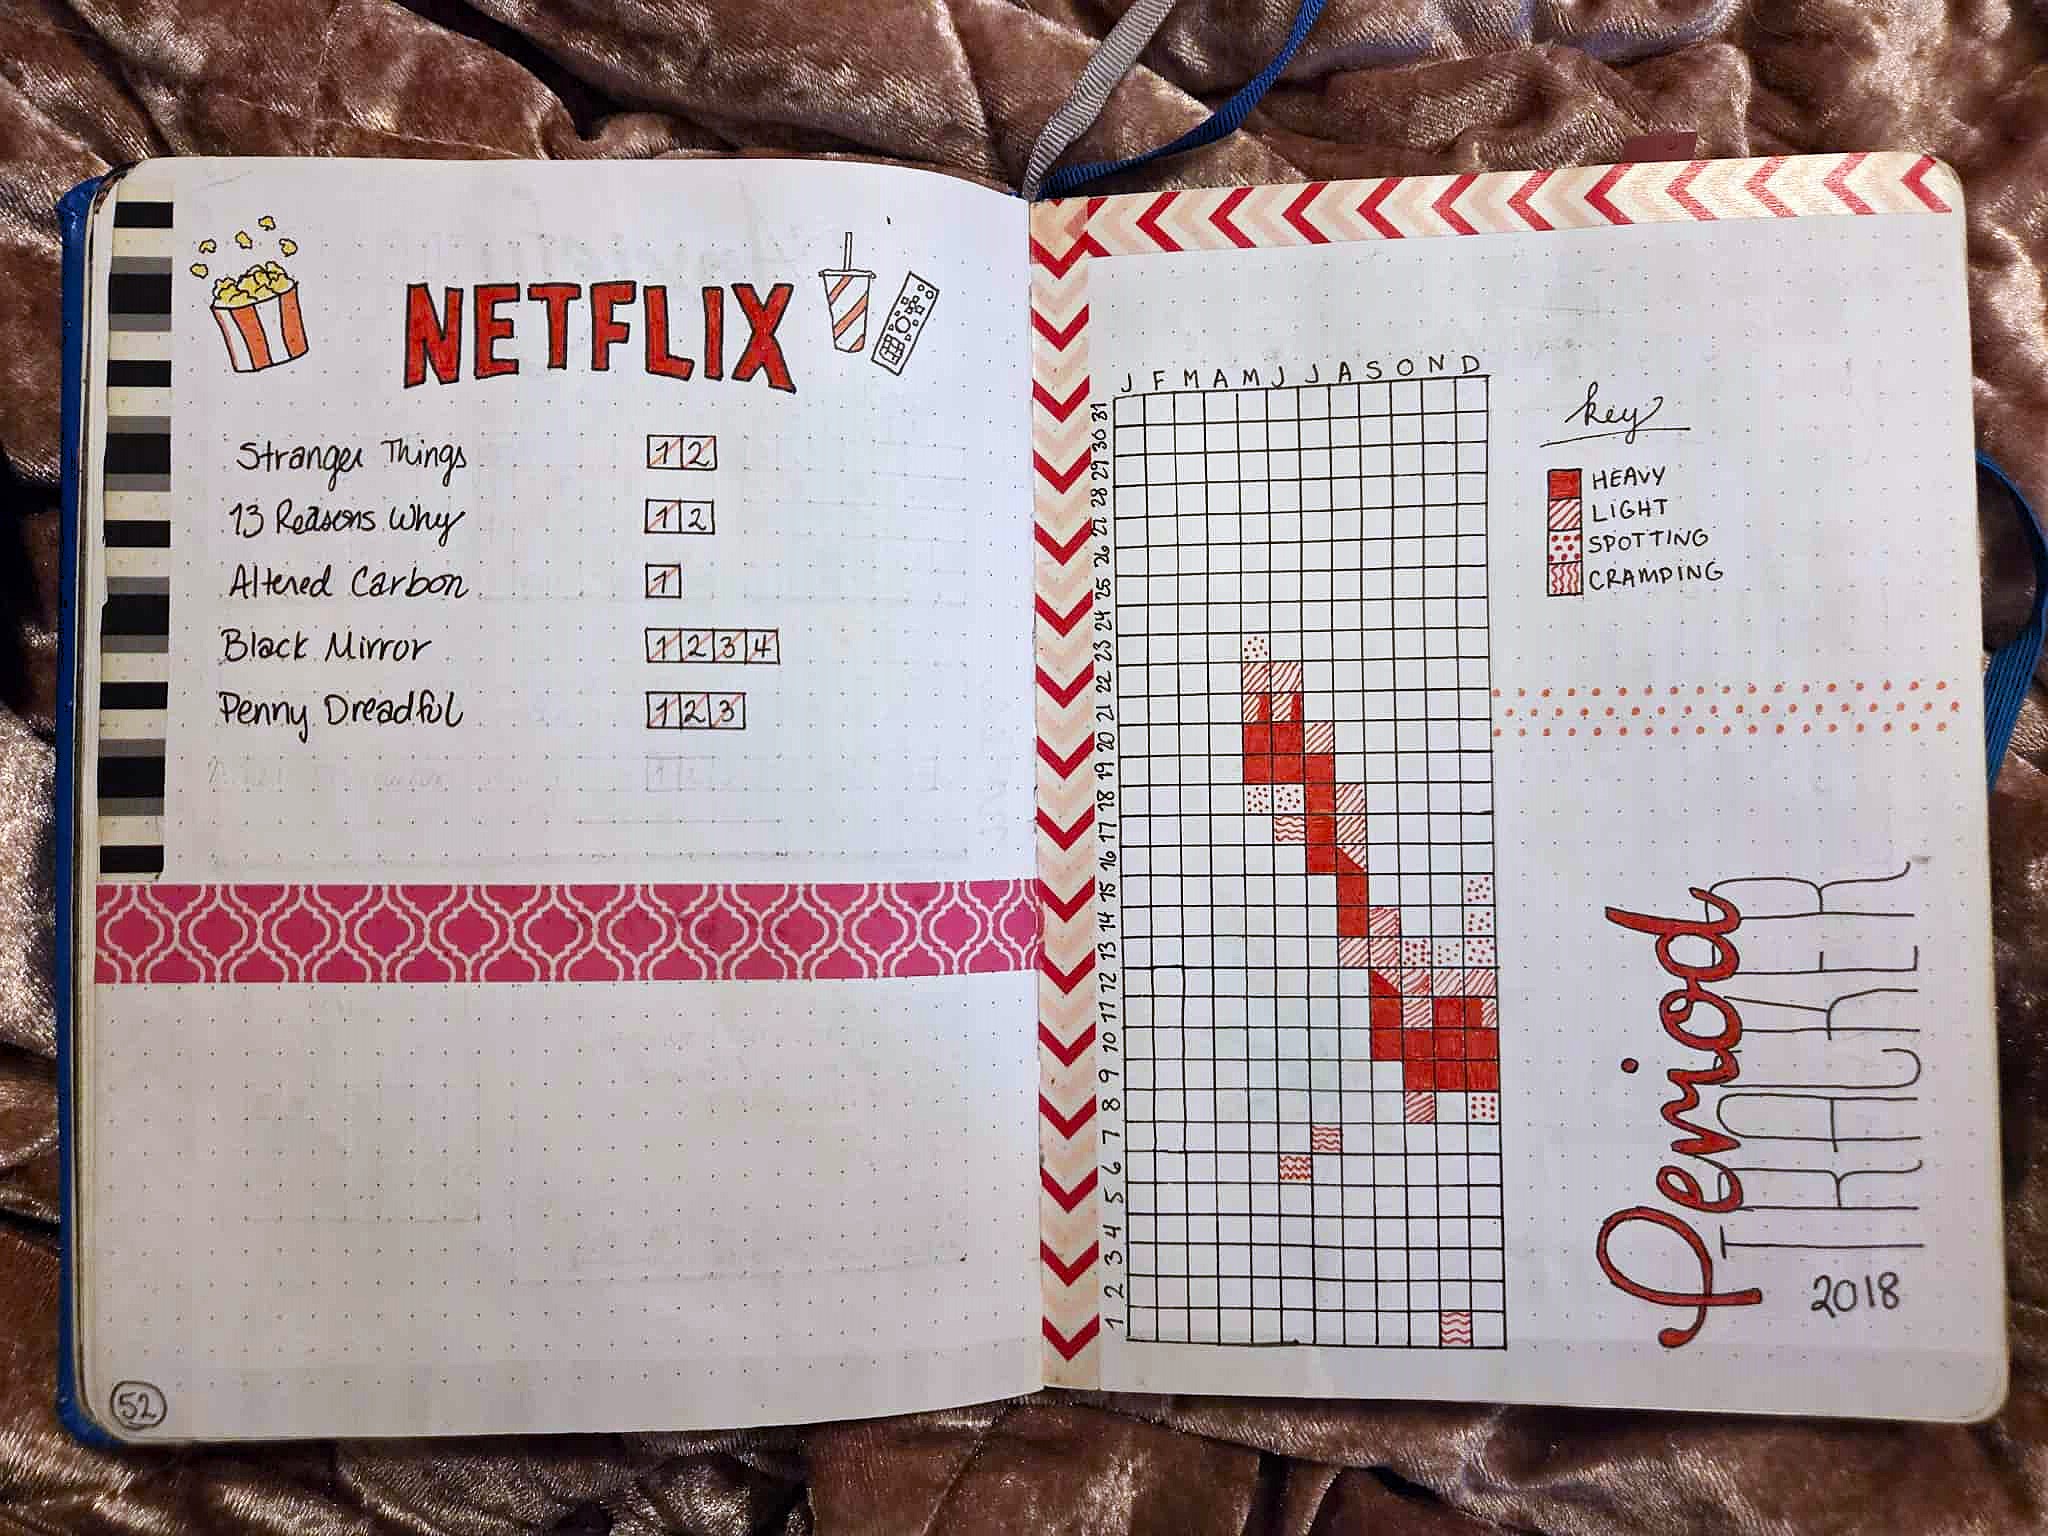 NETFLIX
Stranger Things 1 2
13 Reasons Why 1 2
Altered Carbon 1
Black Mirror 1 2 3 4
Penny Dreadful 1 2 3
52
J F M A M J J A S O N D
31
30
29
28
27
26
25
24
23
22
21
20
19
18
17
16
15
14
13
12
11
10
9
8
7
6
5
4
3
2
1
key
HEAVY
LIGHT
SPOTTING
CRAMPING
Period
TRACKER
2018